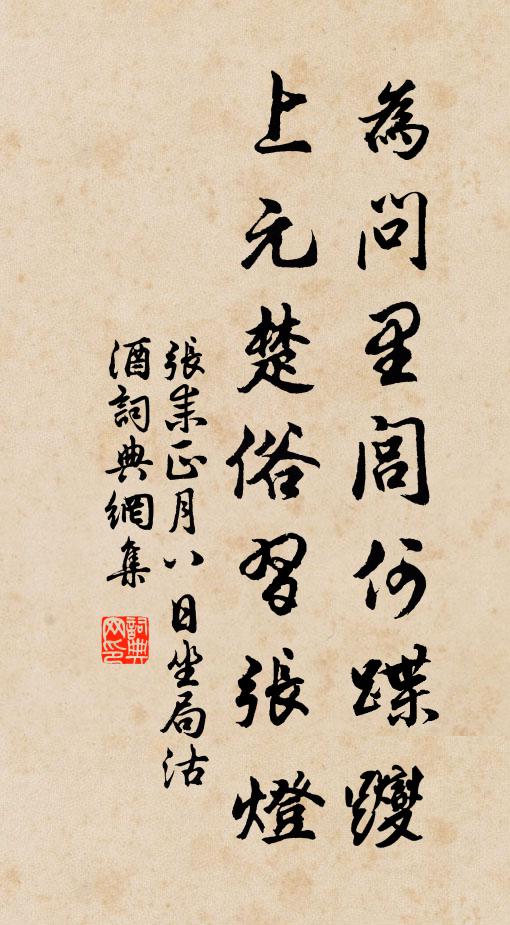 為問里閭何蹀躞
上元楚俗習張燈
張耒正月八日坐局沽
酒詞典網集
詞典網印